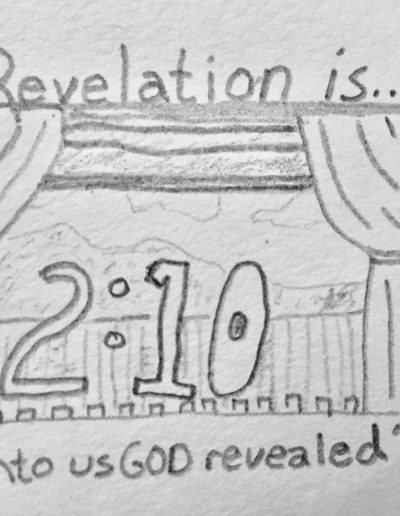 Revelation is..
2:10
nto us GOD revealed"